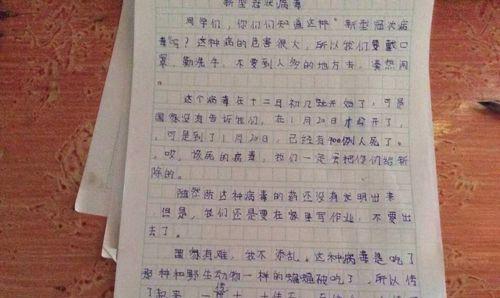 新型冠状病毒
同学们，你们们知道这种“新型冠状病
毒”吗？这种病的危害很大，所以我们要戴口
罩，勤洗手，不要到人多的地方去，凑热闹
。
这个病毒在十二月初几就开始了，可是
国家没有告诉我们，在1月20日才公开了，
，可是到了1月20日，已经有400例人死了。
。哎，该死的病毒，我们一定会把你们给铲
除的。
虽然治这种病毒的药还没有发明出来
但是，我们还是要在家里写作业，不要出
去了。
国家有难，我不添乱。这种病毒是吃了
那种和野生动物一样的蝙蝠被吃了，所以传
了起来，一传十，十传百，